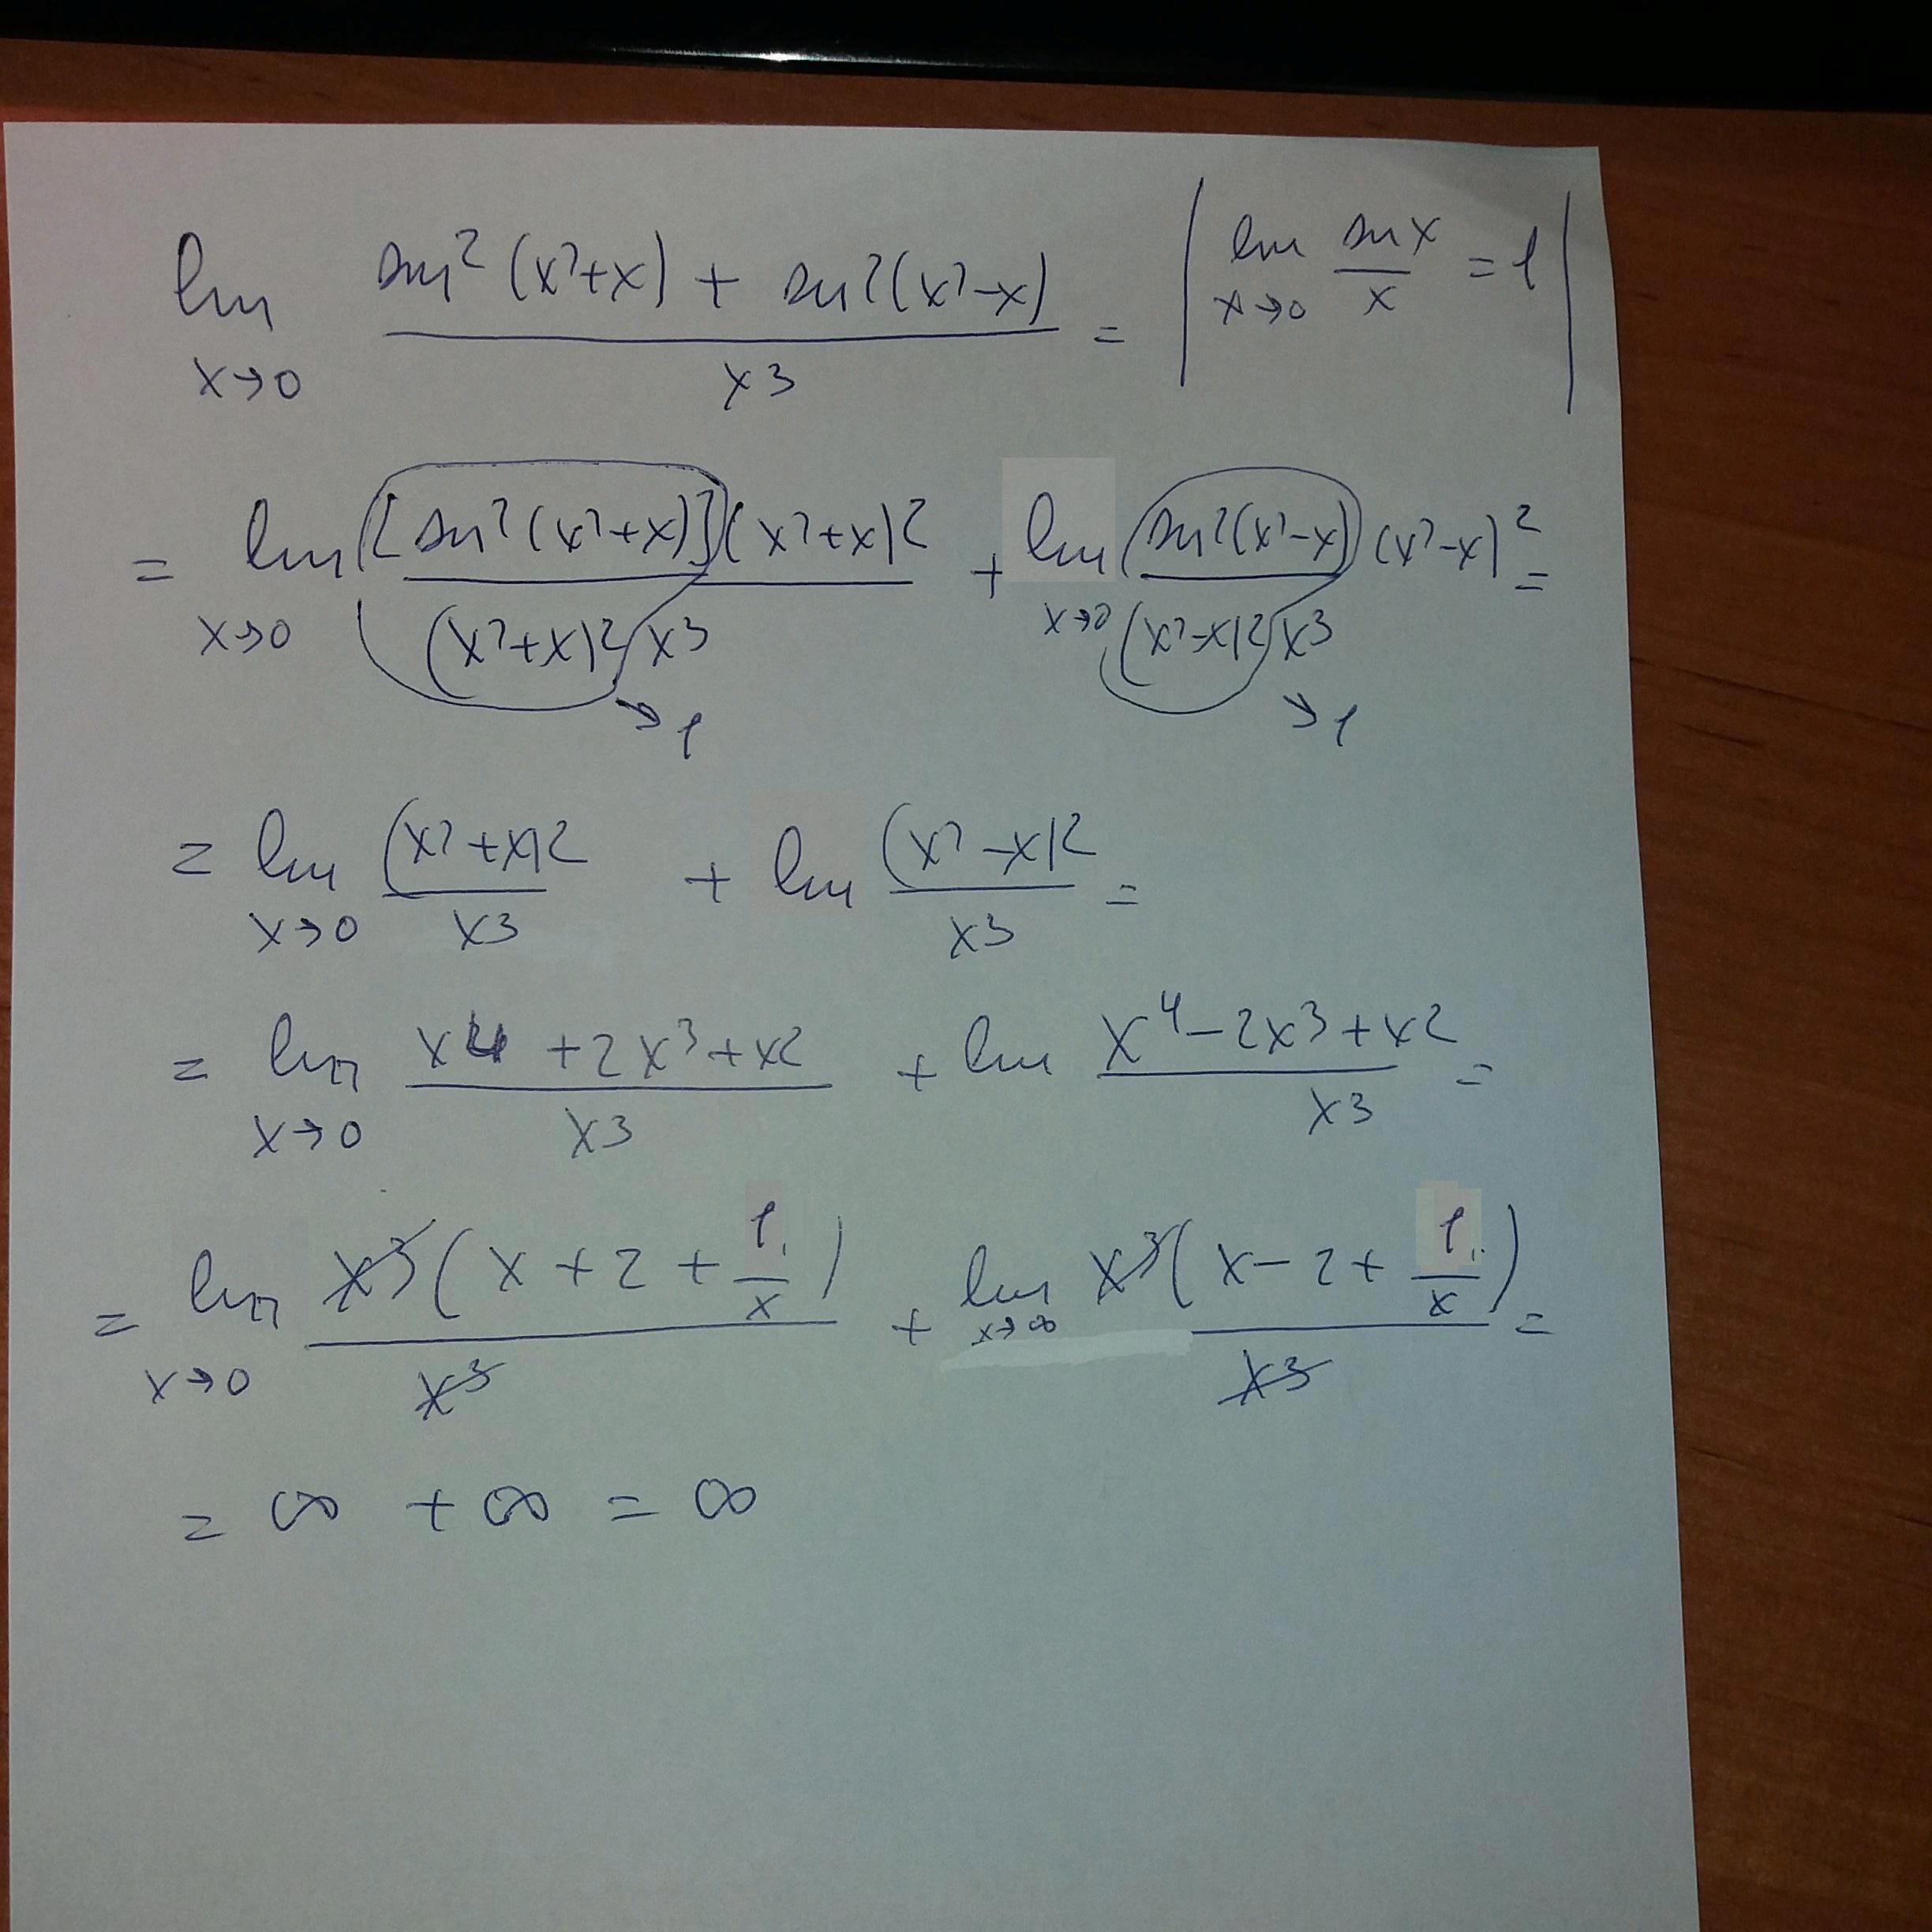 lim x→0 (sin²(x²+x) + sin²(x²-x))/x³ = | lim x→0 sin x/x = 1 |
= lim x→0 ([sin²(x²+x)](x²+x)²)/((x²+x)² x³) → 1 + lim x→0 (sin²(x²-x) (x²-x)²)/((x²-x)² x³) → 1 =
= lim x→0 (x²+x)²/x³ + lim (x²-x)²/x³ =
= lim x→0 (x⁴+2x³+x²)/x³ + lim (x⁴-2x³+x²)/x³ =
= lim x→0 x³(x+2+1/x)/x³ + lim x→∞ x³(x-2+1/x)/x³ =
= ∞ + ∞ = ∞